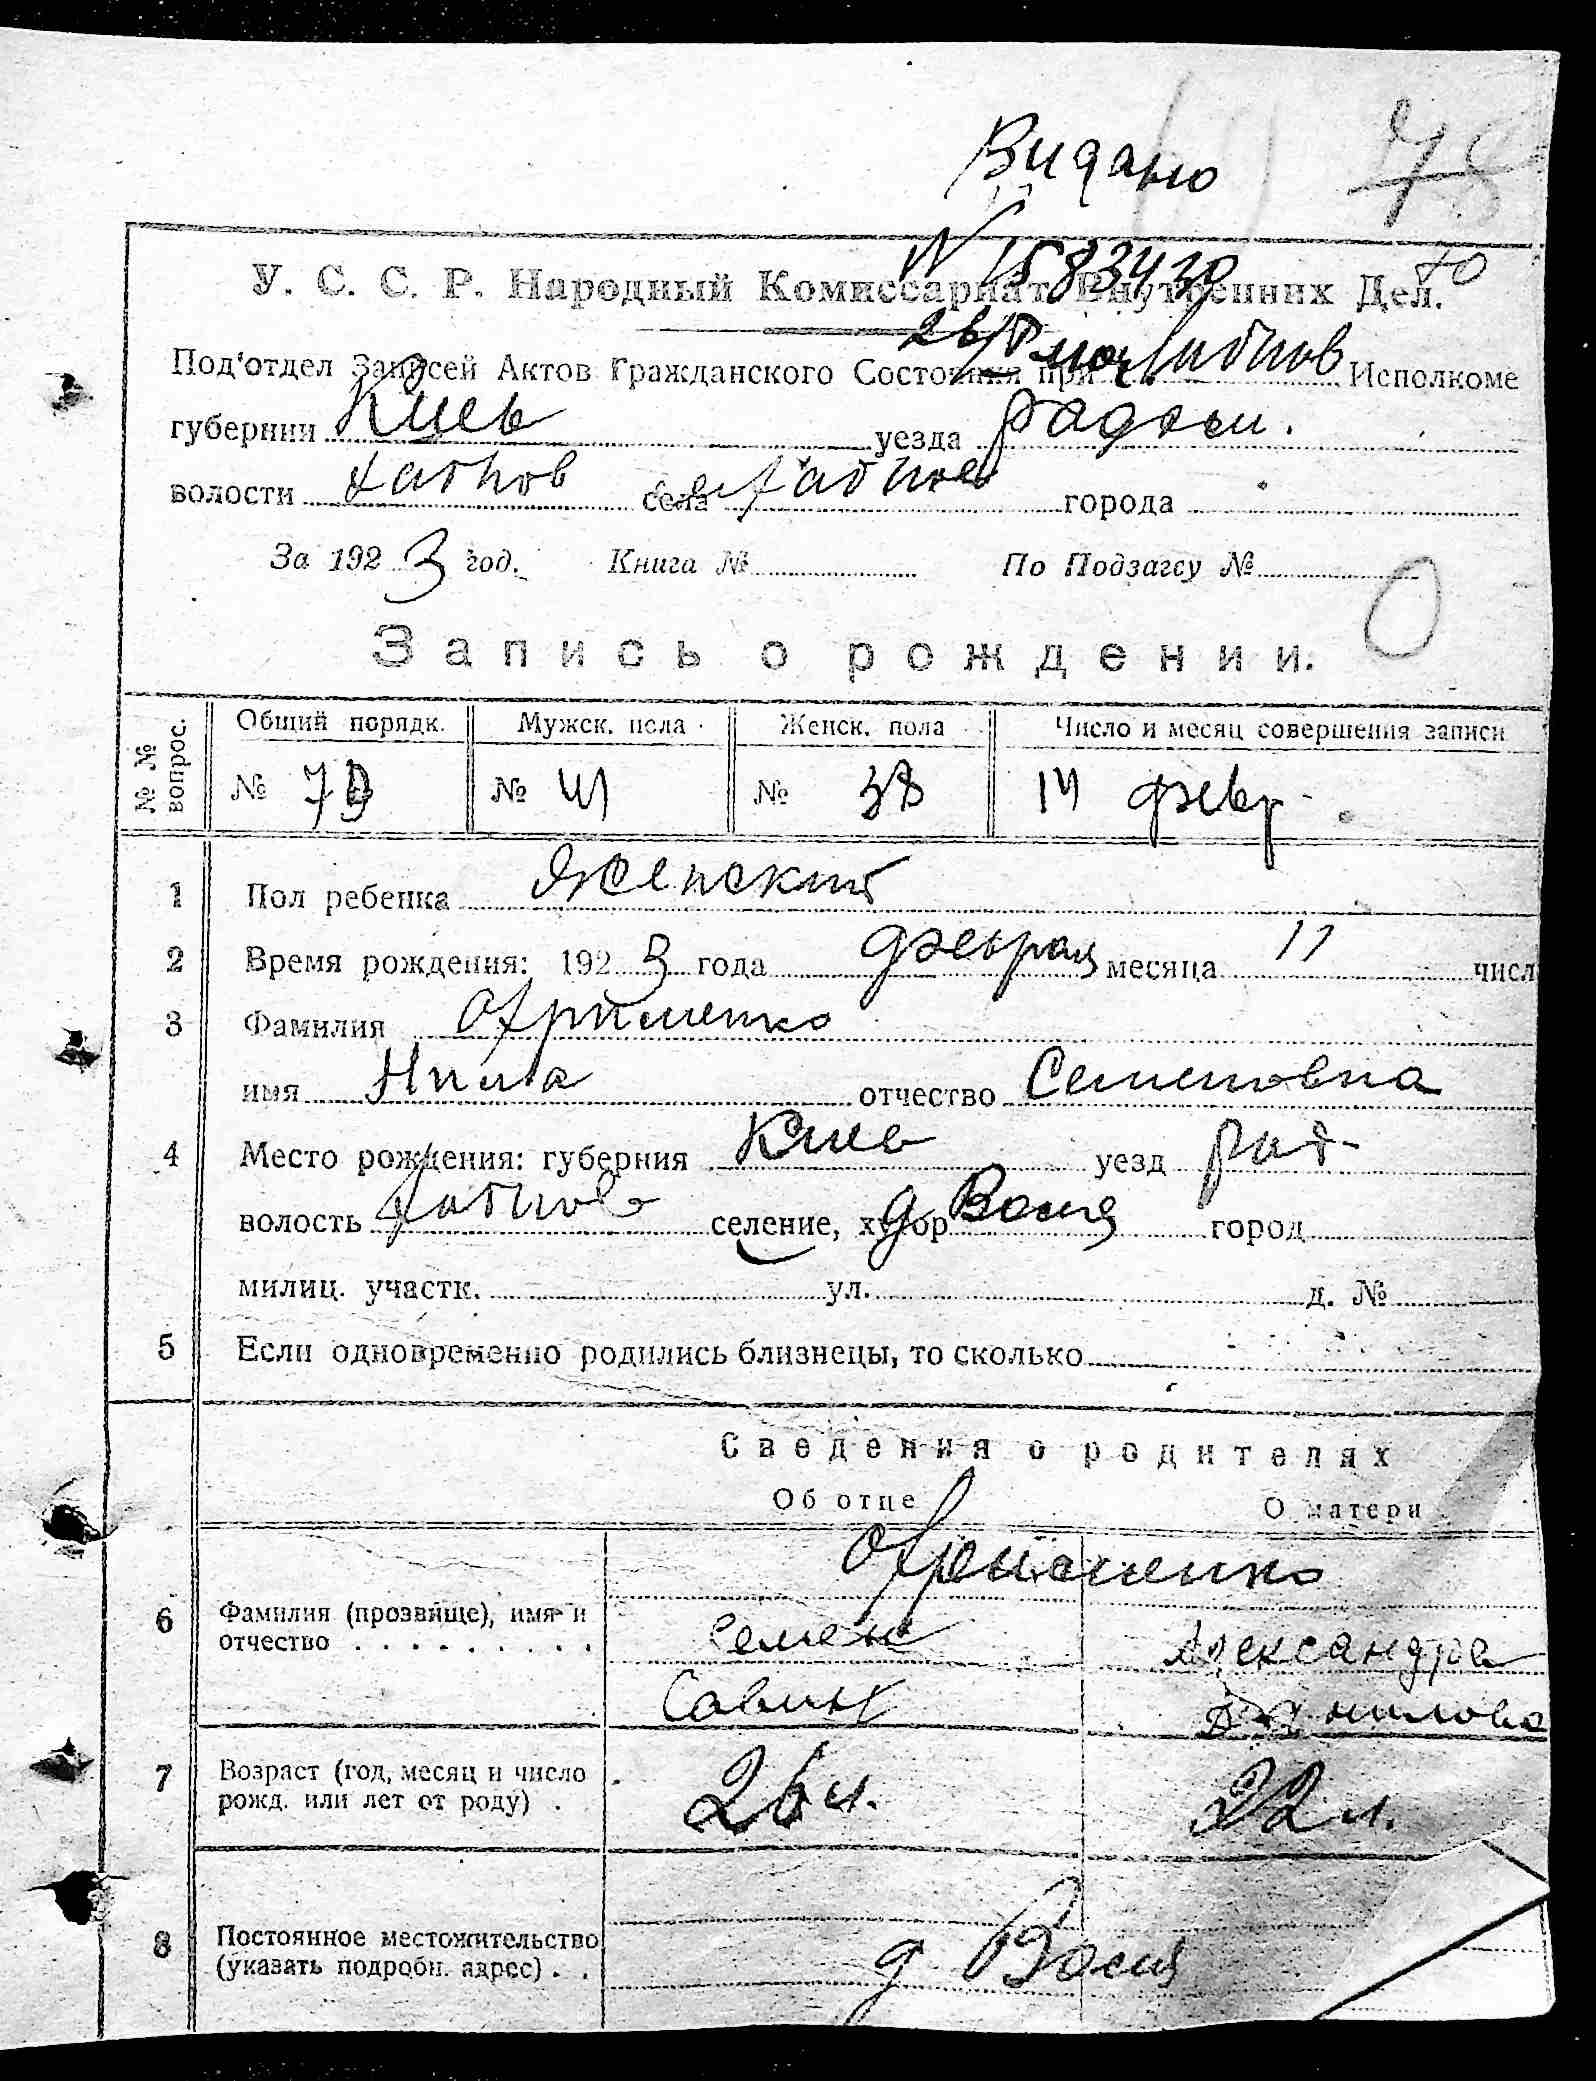 Видано
78
N 1583430
70
У. С. С. Р. Народный Комиссариат Внутренних Дел.
Под'отдел Записей Актов Гражданского Состояния при Хабнов Исполкоме
губернии Киев уезда Радом.
волости Хабнов села Хабное города
За 1923 год. Книга № По Подзагсу №
Запись о рождении.
№ № вопрос. Общий порядк. Мужск. пола Женск. пола Число и месяц совершения записи
№ 79 № 41 № 38 14 февр
1 Пол ребенка Женский
2 Время рождения: 1923 года февраля месяца 11 числ
3 Фамилия
имя Нина отчество Семеновна
4 Место рождения: губерния Киев уезд Рад-
волость Хабнов селение, хутор д город
милиц. участк. ул. д. №
5 Если одновременно родились близнецы, то сколько
Сведения о родителях
Об отце О матери
6 Фамилия (прозвище), имя и
отчество Семен Александра
Савин Даниловна
7 Возраст (год, месяц и число
рожд. или лет от роду) 26 л. 22 л.
8 Постоянное местожительство
(указать подробн. адрес) д